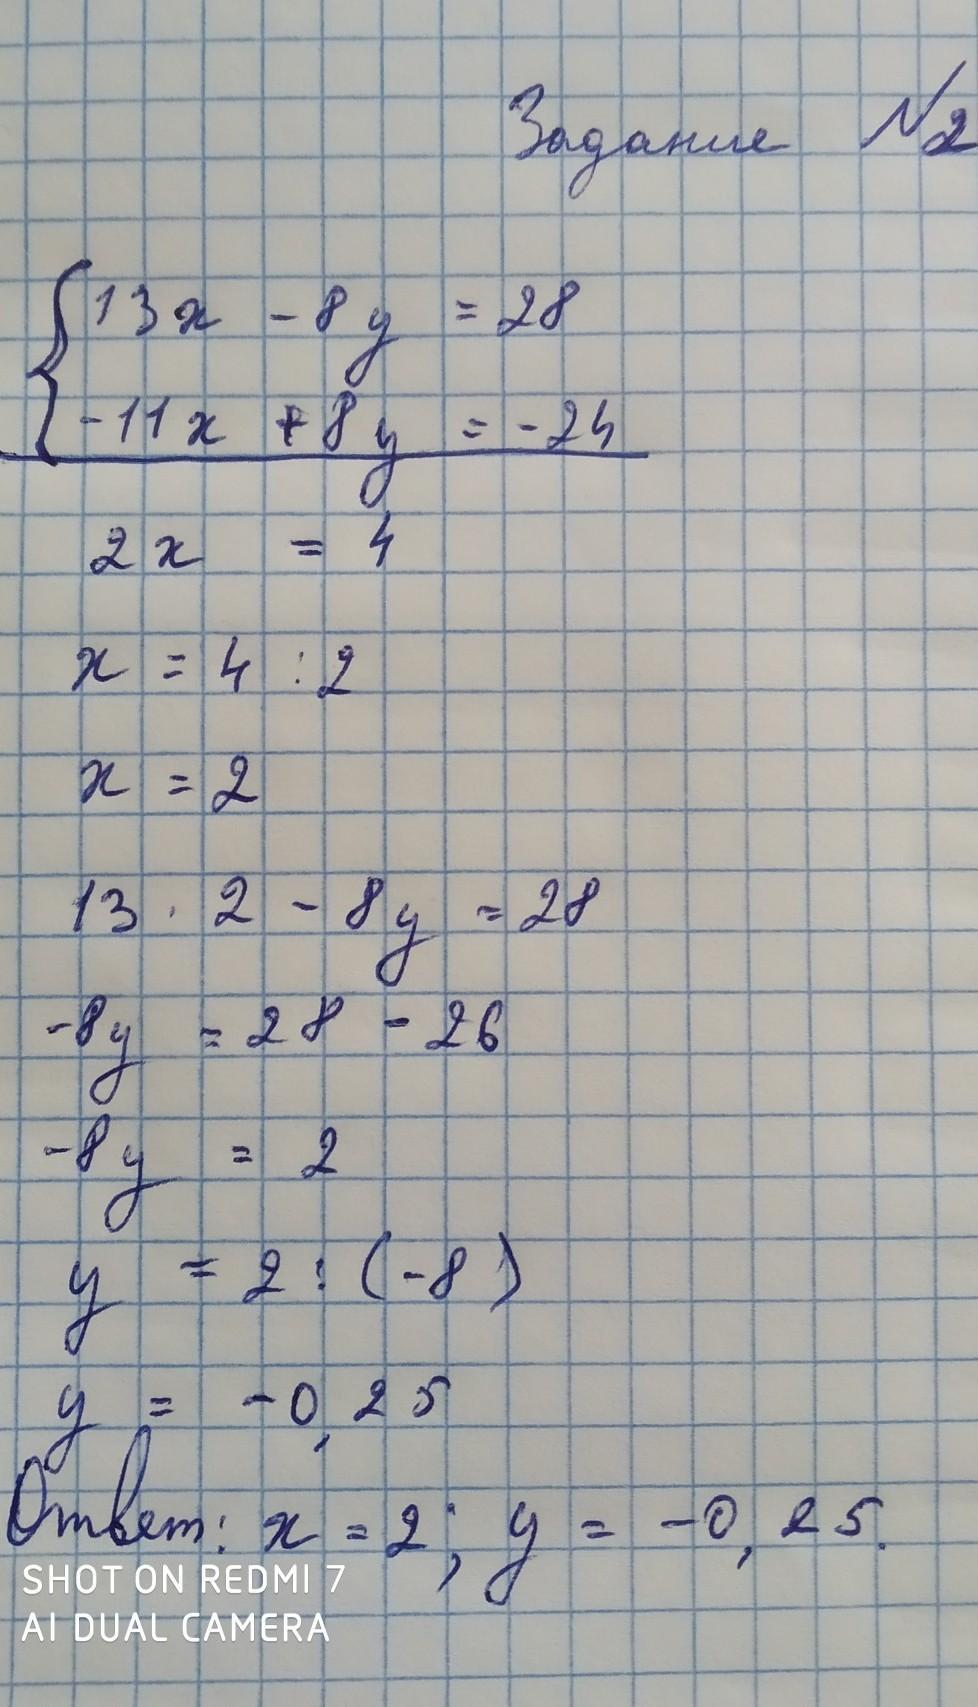 Задание №2
13x - 8y = 28
-11x + 8y = -24
2x = 4
x = 4 : 2
x = 2
13 · 2 - 8y = 28
-8y = 28 - 26
-8y = 2
y = 2 : (-8)
y = -0,25
Ответ: x = 2; y = -0,25.
SHOT ON REDMI 7
AI DUAL CAMERA